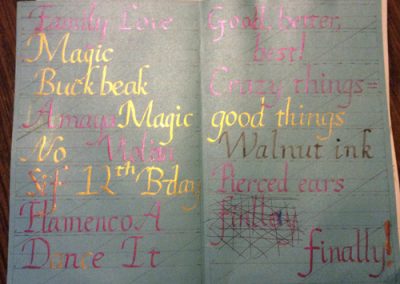 Family Love
Magic
Buckbeak
Amaya Magic
No Violin
12th B-day
Flamenco A
Dance It
Good, better,
best!
Crazy things=
good things
Walnut ink
Pierced ears
finally!